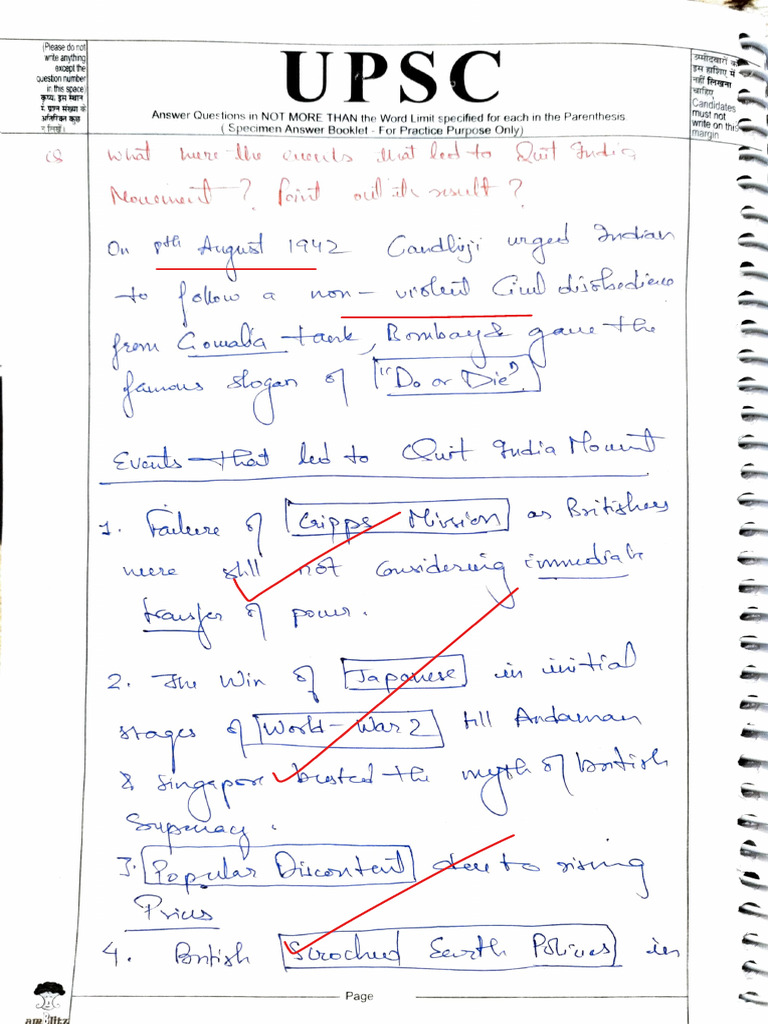 (Please do not
write anything
except the
question number
in this space)
कृपया इस स्थान
में प्रश्न संख्या के
अतिरिक्त कुछ
न लिखें।
UPSC
Answer Questions in NOT MORE THAN the Word Limit specified for each in the Parenthesis
( Specimen Answer Booklet - For Practice Purpose Only)
उम्मीदवारों को
इस हाशिए में
नहीं लिखना
चाहिए
Candidates
must not
write on this
margin
What were the events that led to Quit India
Movement? Point out its result?
On 8th August 1942 Gandhiji urged Indian
to follow a non-violent Civil disobedience
from Gowalia tank, Bombay & gave the
famous slogan of "Do or Die".
Events that led to Quit India Movement
1. Failure of Cripps Mission as Britishers
were still not considering immediate
transfer of power.
2. The Win of Japanese in initial
stages of World-War 2 till Andaman
& Singapore busted the myth of British
Supremacy.
3. Popular Discontent due to rising
Prices
4. British Scroched Earth Policies in
Page